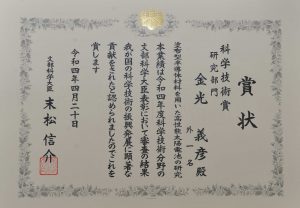 賞状
科学技術賞
研究部門
金光義彦殿
外一名
塗布型半導体材料を用いた高性能太陽電池の研究
本業績は令和四年度科学技術分野の
文部科学大臣表彰において審査の結果
我が国の科学技術の振興発展に顕著な
貢献をされたと認められましたのでこれを
賞します
令和四年四月二十日
文部科学大臣
末松信介